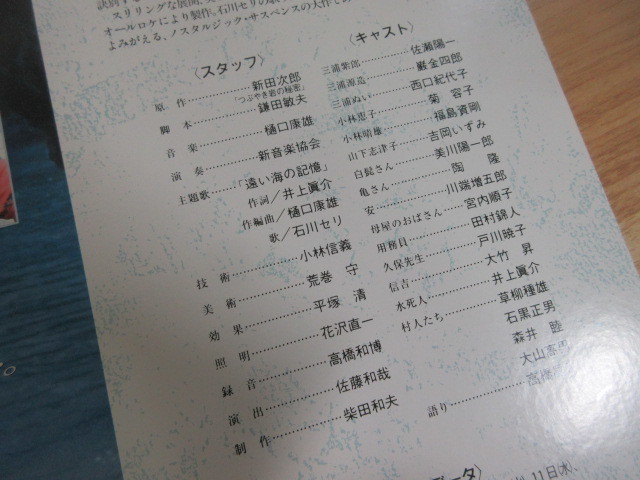 スリリングな展開
オールロケにより製作。石川セリの
よみがえる、ノスタルジック・サスペンスの大作で
〈スタッフ〉
原作…………新田次郎
「つぶやき岩の秘密」
脚本…………鎌田敏夫
音楽…………樋口康雄
演奏…………新音楽協会
主題歌………「遠い海の記憶」
作詞／井上眞介
作編曲／樋口康雄
歌／石川セリ
技術…………小林信義
美術…………荒巻 守
効果…………平塚 清
照明…………花沢直一
録音…………高橋和博
演出…………佐藤和哉
制作…………柴田和夫
〈キャスト〉
三浦紫郎…………佐瀬陽一
三浦源造…………巖金四郎
三浦ぬい…………西口紀代子
小林恵子…………菊 容子
小林晴雄…………福島資剛
山下志津子………吉岡いずみ
白髭さん…………美川陽一郎
亀さん…………陶 隆
安…………川端増五郎
母屋のおばさん………宮内順子
用務員…………田村錦人
久保先生…………戸川暁子
信吉…………大竹 昇
水死人…………井上眞介
村人たち…………草柳種雄
石黒正男
森井 睦
大山
語り…………
データ〉
11日(水)、